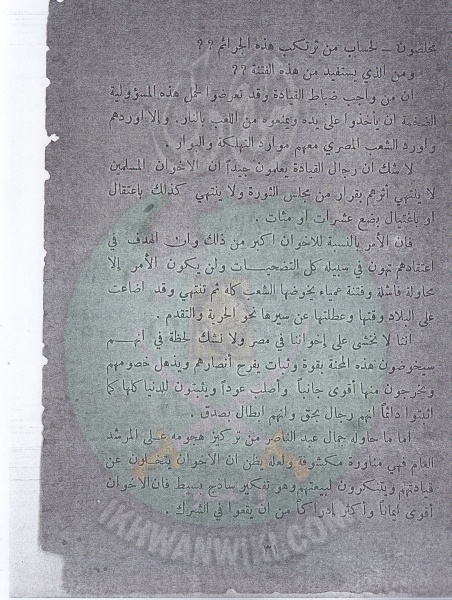 مخلصون – لحساب من ترتكب هذه الجرائم ؟؟
ومن الذي يستفيد من هذه الفتنة ؟؟
ان من واجب ضباط القيادة وقد تعرضوا لحمل هذه المسؤولية
الضخمة ان يأخذوا على يده ويمنعوه من اللعب بالنار. وإلا اوردهم
وأورد الشعب المصري معهم موارد التهلكة والبوار .
لا شك ان رجال القيادة يعلمون جيداً ان الاخوان المسلمين
لا ينتهي أثرهم بقرار من مجلس الثورة ولا ينتهي كذلك باعتقال
او باغتيال بضع عشرات او مئات .
فان الأمر بالنسبة للاخوان اكبر من ذلك وان الهدف في
اعتقادهم تهون في سبيله كل التضحيات ولن يكون الأمر إلا
محاولة فاشلة وفتنة عمياء يخوضها الشعب كله ثم تنتهي وقد اضاعت
على البلاد وقتها وعطلتها عن سيرها نحو الحرية والتقدم .
اننا لا نخشى على إخواننا في مصر ولا نشك لحظة في انهم
سيخوضون هذه المحنة بقوة وثبات يفرح أنصارهم ويذهل خصومهم
ويخرجون منها أقوى جانباً وأصلب عوداً ويثبتون للدنيا كلها كما
اثبتوا دائماً انهم رجال بحق وانهم ابطال بصدق .
اما ما حاوله جمال عبد الناصر من تركيز هجومه على المرشد
العام فهي مناورة مكشوفة ولعله يظن ان الاخوان يتخلون عن
قيادتهم ويتنكرون لبيعتهم وهو تفكير ساذج بسيط فان الاخوان
أقوى ايماناً وأكثر إدراكاً من ان يقعوا في الشرك .
٣١
IKHWANWIKI.COM